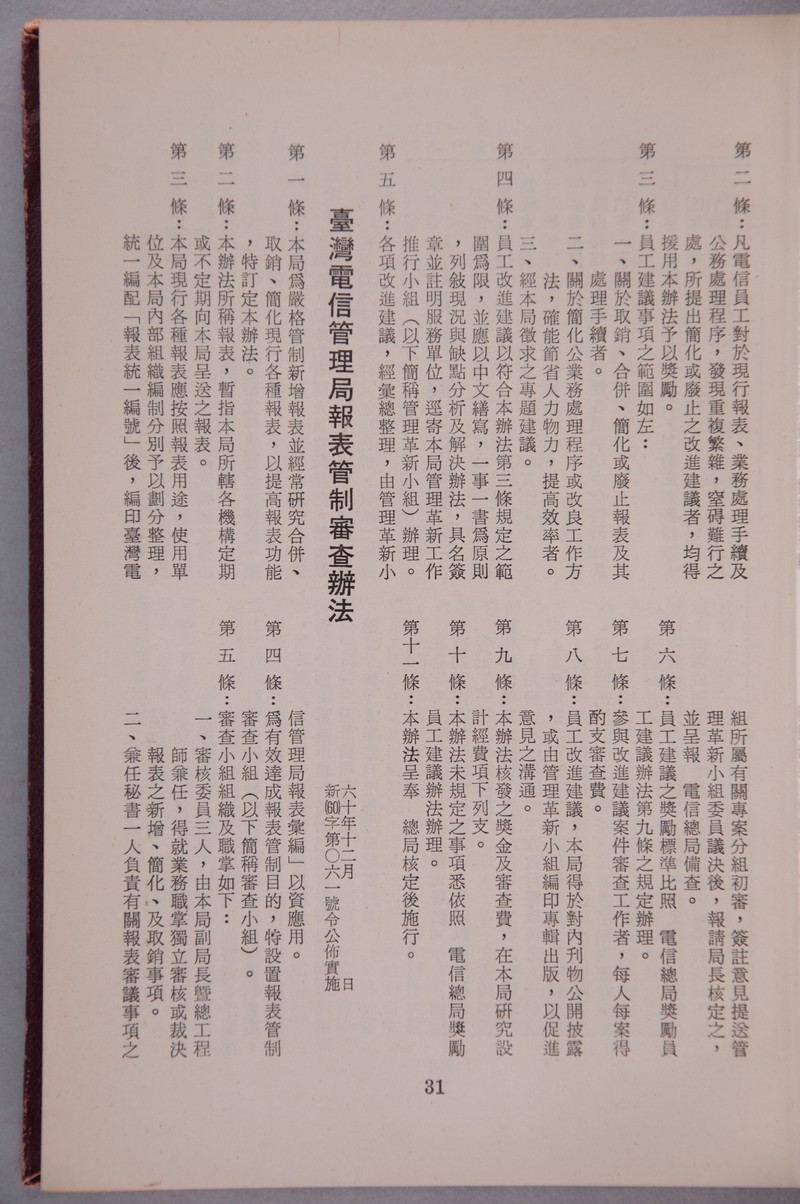 第二條：凡電信員工對於現行報表、業務處理手續及
公務處理程序，發現重複繁雜，窒碍難行之
處，所提出簡化或廢止之改進建議者，均得
援用本辦法予以獎勵。
第三條：員工建議事項之範圍如左：
一、關於取銷、合併、簡化或廢止報表及其
處理手續者。
二、關於簡化公業務處理程序或改良工作方
法，確能節省人力物力，提高效率者。
三、經本局徵求之專題建議。
第四條：員工改進建議以符合本辦法第三條規定之範
圍爲限，並應以中文繕寫，一事一書爲原則
，列敍現況與缺點分析及解決辦法，具名簽
章並註明服務單位，逕寄本局管理革新工作
推行小組（以下簡稱管理革新小組）辦理。
第五條：各項改進建議，經彙總整理，由管理革新小
組所屬有關專案分組初審，簽註意見提送管
理革新小組委員議決後，報請局長核定之，
並呈報　電信總局備查。
第六條：員工建議之獎勵標準比照　電信總局獎勵員
工建議辦法第九條之規定辦理。
第七條：參與改進建議案件審查工作者，每人每案得
酌支審查費。
第八條：員工改進建議，本局得於對內刊物公開披露
，或由管理革新小組編印專輯出版，以促進
意見之溝通。
第九條：本辦法核發之獎金及審查費，在本局研究設
計經費項下列支。
第十條：本辦法未規定之事項悉依照　電信總局獎勵
員工建議辦法辦理。
第十一條：本辦法呈奉　總局核定後施行。
臺灣電信管理局報表管制審查辦法
六十年十二月　日
新(60)字第〇六一號令公佈實施
第一條：本局爲嚴格管制新增報表並經常研究合併、
取銷、簡化現行各種報表，以提高報表功能
，特訂定本辦法。
第二條：本辦法所稱報表，暫指本局所轄各機構定期
或不定期向本局呈送之報表。
第三條：本局現行各種報表應按照報表用途，使用單
位及本局內部組織編制分別予以劃分整理，
統一編配「報表統一編號」後，編印臺灣電
信管理局報表彙編」以資應用。
第四條：爲有效達成報表管制目的，特設置報表管制
審查小組（以下簡稱審查小組）。
第五條：審查小組組織及職掌如下：
一、審核委員三人，由本局副局長暨總工程
師兼任，得就業務職掌獨立審核或裁決
報表之新增、簡化、及取銷事項。
二、兼任秘書一人負責有關報表審議事項之
31